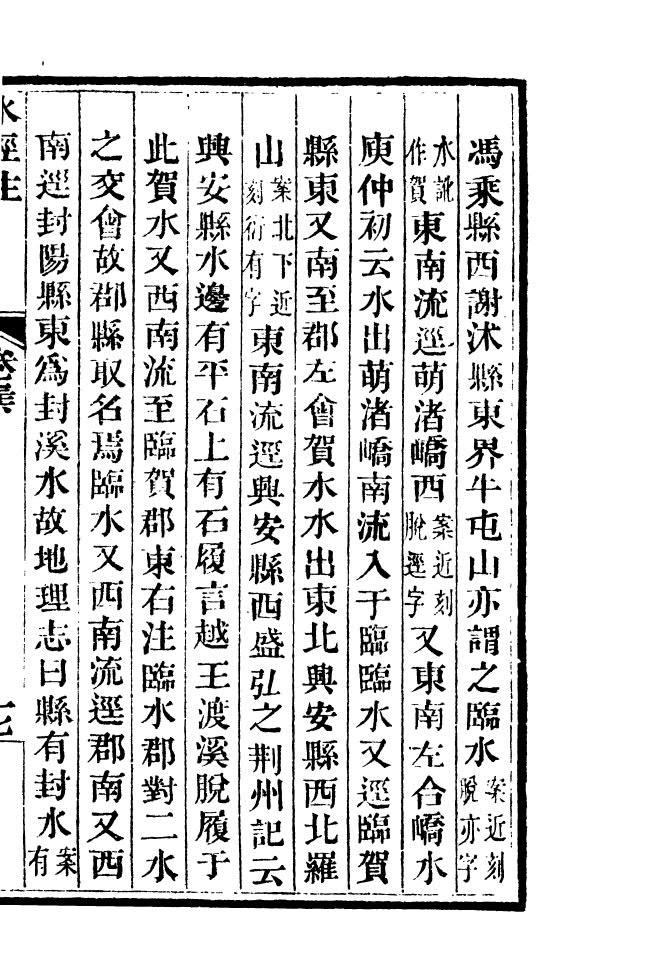 馮乘縣西謝沐縣東界牛屯山亦謂之臨水案近刻脫亦字
水訛作賀東南流逕萌渚嶠西案近刻脫逕字又東南左合嶠水
庾仲初云水出萌渚嶠南流入于臨臨水又逕臨賀
縣東又南至郡左會賀水水出東北興安縣西北羅
山案北下近刻衍有字東南流逕興安縣西盛弘之荆州記云
興安縣水邊有平石上有石履言越王渡溪脫履于
此賀水又西南流至臨賀郡東右注臨水郡對二水
之交會故郡縣取名焉臨水又西南流逕郡南又西
南逕封陽縣東爲封溪水故地理志曰縣有封水案有
水經注